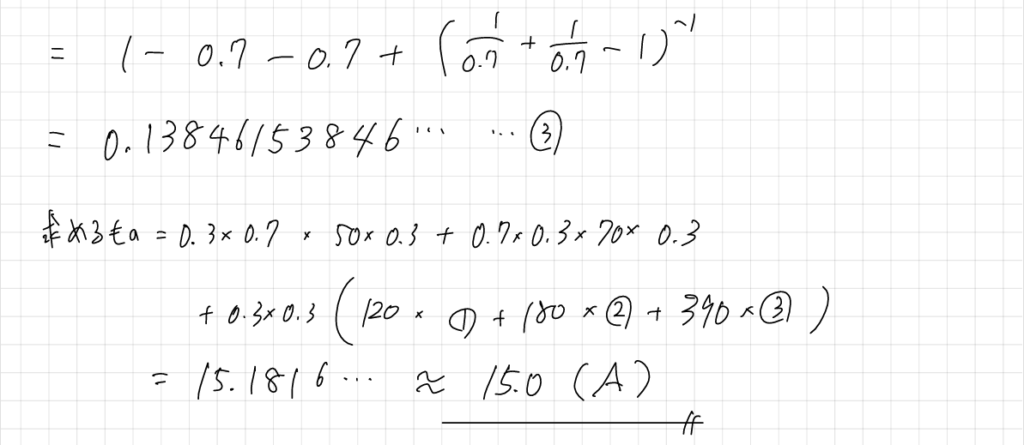 = 1 - 0.7 - 0.7 + (1/0.7 + 1/0.7 - 1)^-1
= 0.13846153846… …③
求めるもa = 0.3×0.7 × 50×0.3 + 0.7×0.3×70×0.3
+ 0.3×0.3 (120 × ① + 180 ×② + 390 ×③)
= 15.1816… ≈ 15.0 (A)